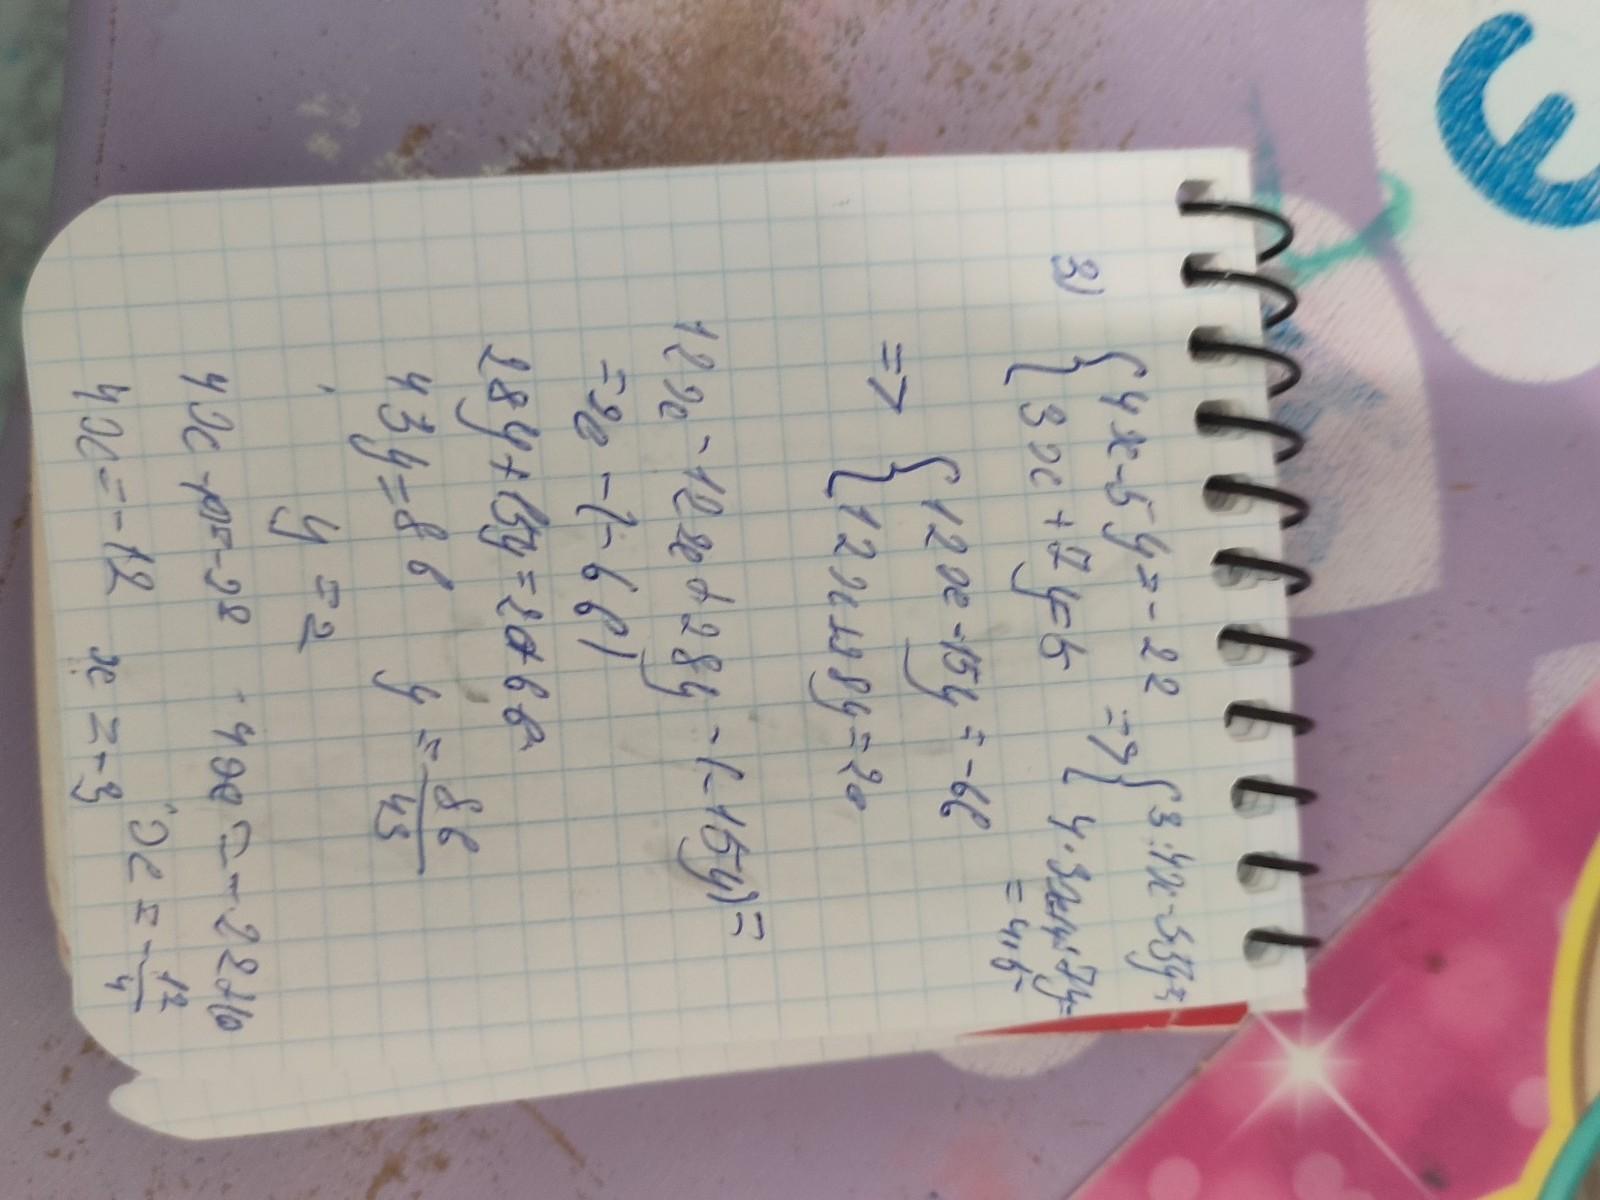 3)
{ 4x-5y=-22 => { 3·4x-3·5y=
{ 3x+7y=5 { 4·3x+4·7y=
=4·5
=> { 12x-15y=-66
{ 12x+28y=20
12x-12x+28y-(-15y)=
=20-(-66)
28y+15y=20+66
43y=86 y=86/43
y=2
4x-10=-22 4x=-22+10
4x=-12 x=-12/4
x=-3